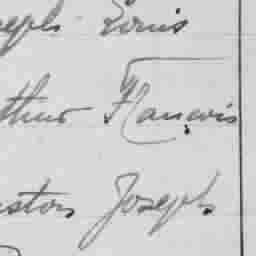 seph Louis
thur François
ston Joseph